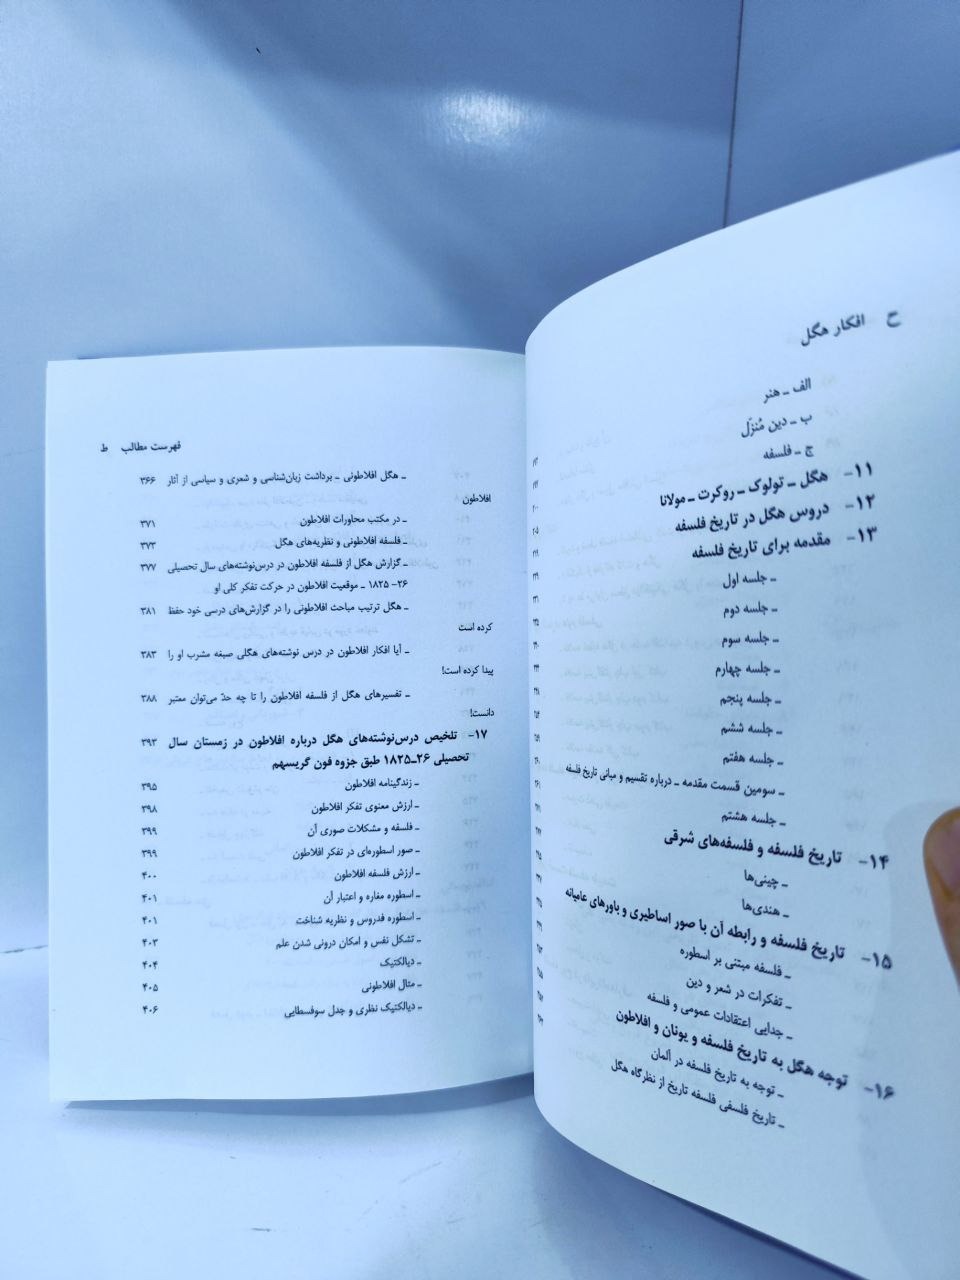 ح افکار هگل
الف ـ هنر
ب ـ دین مُنزَل
ج ـ فلسفه
۱۱- هگل ـ تولوک ـ روکرت ـ مولانا
۱۲- دروس هگل در تاریخ فلسفه
۱۳- مقدمه برای تاریخ فلسفه
ـ جلسه اول
ـ جلسه دوم
ـ جلسه سوم
ـ جلسه چهارم
ـ جلسه پنجم
ـ جلسه ششم
ـ جلسه هفتم
ـ سومین قسمت مقدمه ـ درباره تقسیم و مبانی تاریخ فلسفه
ـ جلسه هشتم
۱۴- تاریخ فلسفه و فلسفه‌های شرقی
ـ چینی‌ها
ـ هندی‌ها
۱۵- تاریخ فلسفه و رابطه آن با صور اساطیری و باورهای عامیانه
ـ فلسفه مبتنی بر اسطوره
ـ تفکرات در شعر و دین
ـ جدایی اعتقادات عمومی و فلسفه
۱۶- توجه هگل به تاریخ فلسفه و یونان و افلاطون
ـ توجه به تاریخ فلسفه در آلمان
ـ تاریخ فلسفی فلسفه تاریخ از نظرگاه هگل
فهرست مطالب ط
ـ هگل افلاطونی ـ برداشت زبان‌شناسی و شعری و سیاسی از آثار ۳۶۶
افلاطون
ـ در مکتب محاورات افلاطون ۳۷۱
ـ فلسفه افلاطونی و نظریه‌های هگل ۳۷۳
ـ گزارش هگل از فلسفه افلاطون در درس‌نوشته‌های سال تحصیلی ۳۷۷
۲۶- ۱۸۲۵ ـ موقعیت افلاطون در حرکت تفکر کلی او
ـ هگل ترتیب مباحث افلاطونی را در گزارش‌های درسی خود حفظ ۳۸۱
کرده است
ـ آیا افکار افلاطون در درس نوشته‌های هگلی صبغه مشرب او را ۳۸۳
پیدا کرده است!
ـ تفسیرهای هگل از فلسفه افلاطون را تا چه حدّ می‌توان معتبر ۳۸۸
دانست!
۱۷- تلخیص درس‌نوشته‌های هگل درباره افلاطون در زمستان سال ۳۹۳
تحصیلی ۲۶ـ۱۸۲۵ طبق جزوه فون گریسهم
ـ زندگینامه افلاطون ۳۹۵
ـ ارزش معنوی تفکر افلاطون ۳۹۸
ـ فلسفه و مشکلات صوری آن ۳۹۹
ـ صور اسطوره‌ای در تفکر افلاطون ۳۹۹
ـ ارزش فلسفه افلاطون ۴۰۰
ـ اسطوره مغاره و اعتبار آن ۴۰۱
ـ اسطوره فدروس و نظریه شناخت ۴۰۱
ـ تشکل نفس و امکان درونی شدن علم ۴۰۳
ـ دیالکتیک ۴۰۴
ـ مثال افلاطونی ۴۰۵
ـ دیالکتیک نظری و جدل سوفسطایی ۴۰۶